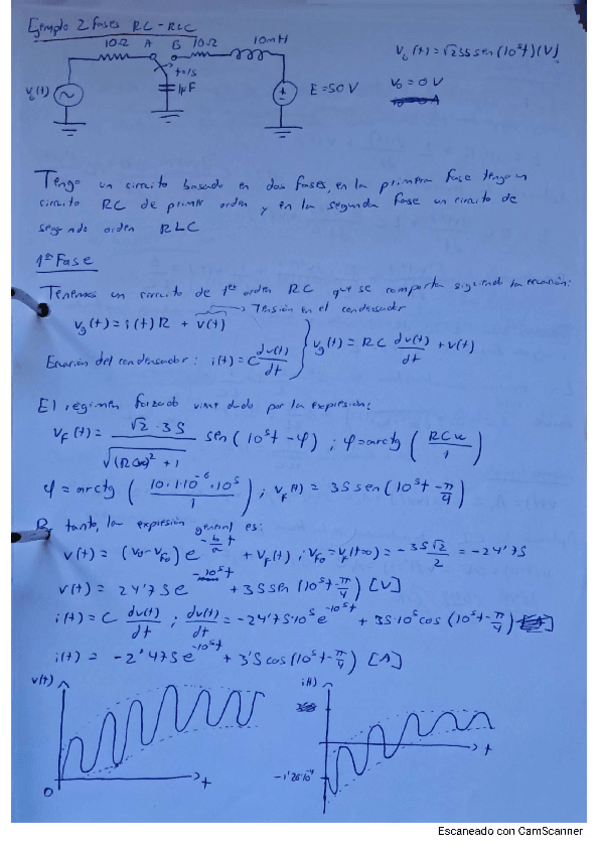 Ejemplo 2 fases RC - RLC
10Ω A B 10Ω 10mH
V₀(t)=√2·35 sen(10⁵t)(V)
t=1s
V₀(t) 1μF E=50V
V₀=0V
Tengo un circuito basado en dos fases, en la primera fase tengo un
circuito RC de primer orden y en la segunda fase un circuito de
segundo orden RLC
1ª Fase
Tenemos un circuito de 1er orden RC que se comporta siguiendo la ecuación:
Vg(t)=i(t)R + v(t) → Tensión en el condensador
Ecuación del condensador: i(t)=C dv(t)/dt } Vg(t)=RC dv(t)/dt + v(t)
El régimen forzado viene dado por la expresión:
VF(t)= √2·35 / √((RCω)²+1) sen(10⁵t-φ) ; φ=arctg(RCω/1)
φ=arctg(10·1·10⁻⁶·10⁵/1) ; VF(t)=35 sen(10⁵t-π/4)
Por tanto, la expresión general es:
v(t)=(V₀-VF₀)e^(-b/a t) + VF(t) ; VF₀=VF(t=0)=-35√2/2=-24'75
v(t)=24'75e^(-10⁵t) + 35 sen(10⁵t-π/4) [V]
i(t)=C dv(t)/dt ; dv(t)/dt=-24'75·10⁵e^(-10⁵t) + 35·10⁵cos(10⁵t-π/4)
i(t)=-2'475e^(-10⁵t) + 3'5cos(10⁵t-π/4) [A]
v(t) i(t)
t
-1'26·10⁻⁴
0 t
Escaneado con CamScanner